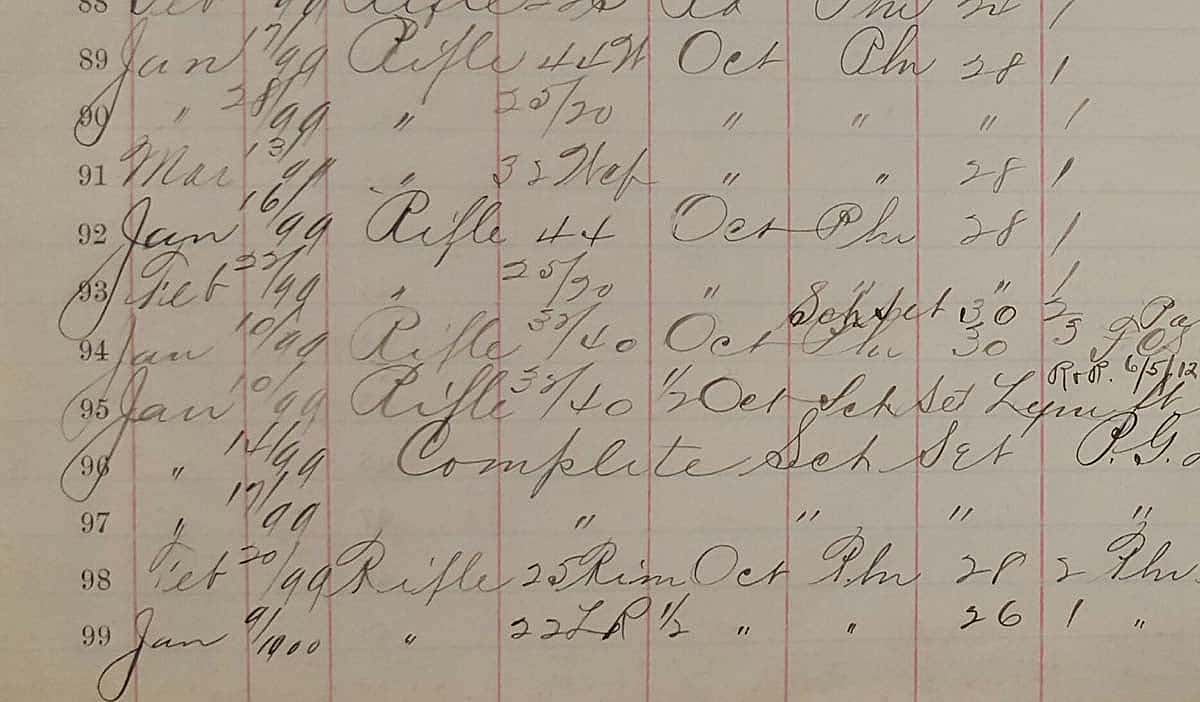 88 Feb /99 Rifle 22 Pln 1
89 Jan 17/99 Rifle 44 W Oct Pln 28 1
90 " 28/99 " 25/20 " " " 1
91 Mar 13/99 " 32 Wcf " " 28 1
92 Jan 16/99 Rifle 44 Oct Pln 28 1
93 Feb 22/99 " 25/20 " " " 1
Sch Set 30 2
94 Jan 10/99 Rifle 32/40 Oct Pln 30 3
R & R. 6/5/12
95 Jan 10/99 Rifle 32/40 1/2 Oct Sch Set Lym
96 " 14/99 Complete Sch Set P.G.
97 " 17/99 " " " "
98 Feb 20/99 Rifle 25 Rim Oct Pln 28 2 Pln.
99 Jan 9/1900 " 22 LR 1/2 " " 26 1 "